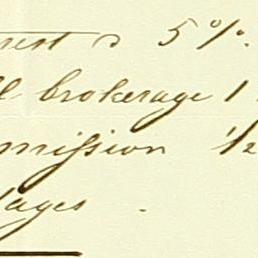 rest à 5 %.
l brokerage 1
mission 1/2
tages .